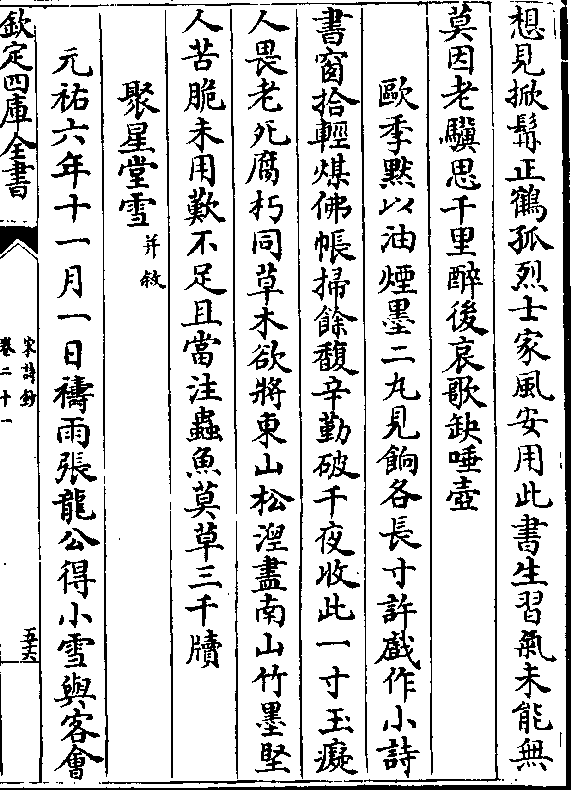 想見掀髯正鶴孤烈士家風安用此書生習氣未能無
莫因老驥思千里醉後哀歌缺唾壺
歐季黙以油煙墨二丸見餉各長寸許戲作小詩
書窗拾輕煤佛帳掃餘馥辛勤破千夜收此一寸玉癡
人畏老死腐朽同草木欲將東山松涅盡南山竹墨堅
人苦脆未用歎不足且當注蟲魚莫草三千牘
聚星堂雪
并敘
元祐六年十一月一日禱雨張龍公得小雪與客會
欽定四庫全書
宋詩鈔
卷二十一
五六